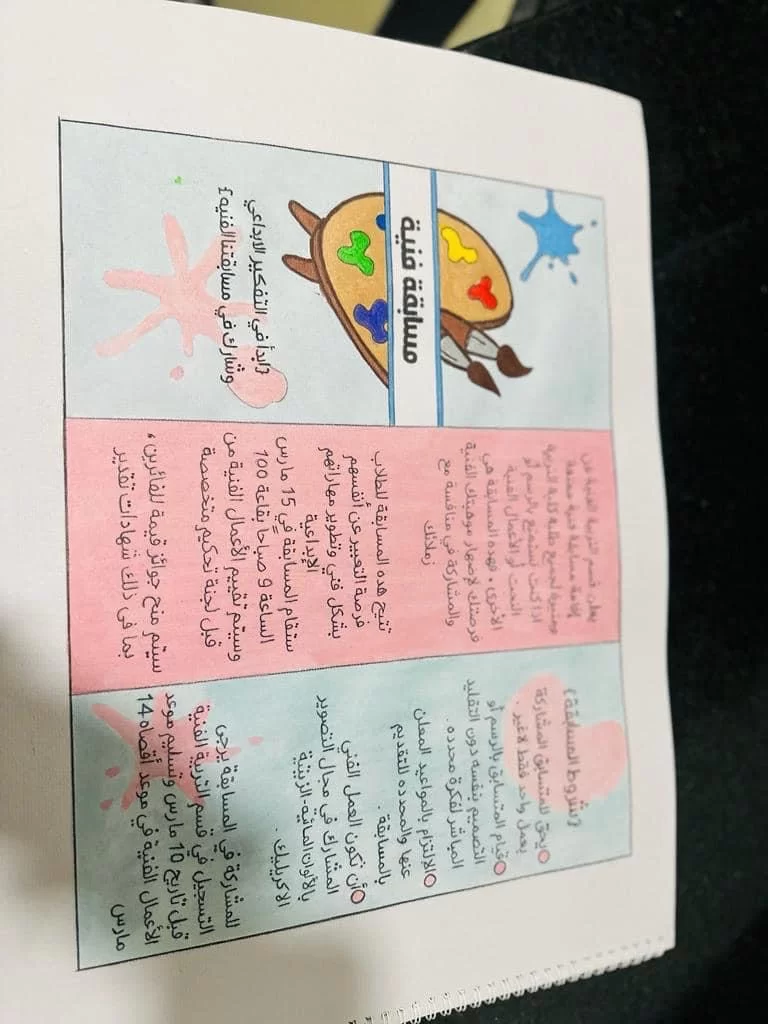 مسابقة فنية
{ابدأ في التفكير الابداعي
وشارك في مسابقتنا الفنيه}
يعلن قسم التربية الفنية عن
إقامة مسابقة فنية ممتعة
ومثيرة لجميع طلبه كلية التربية
اذا كنت تستمتع بالرسم أو
النحت أو الأعمال الفنية
الأخرى ، فهذه المسابقة هي
فرصتك لإصهار موهبتك الفنية
والمشاركة في منافسة مع
زملائك
تتيح هذه المسابقة للطلاب
فرصة التعبير عن أنفسهم
بشكل فني وتطوير مهاراتهم
الإبداعية
ستقام المسابقة في 15 مارس
الساعة 9 صباحا بقاعة 100
وسيتم تقييم الأعمال الفنية من
قبل لجنة تحكيم متخصصة
سيتم منح جوائز قيمة للفائزين ،
بما في ذلك شهادات تقدير
{شروط المسابقة}
يحق للمتسابق المشاركة
بعمل واحد فقط لاغير .
قيام المتسابق بالرسم أو
التصميم بنفسه دون التقليد
المباشر لفكرة محدده .
الإلتزام بالمواعيد المعلن
عنها والمحدده للتقديم
بالمسابقة .
أن تكون العمل الفني
المشارك في مجال التصوير
بالألوان المائية-الزيتية
الاكريليك .
للمشاركة في المسابقة يرجى
التسجيل في قسم التربية الفنية
قبل تاريخ 10 مارس وتسليم موعد
الأعمال الفنية في موعد أقصاه 14
مارس